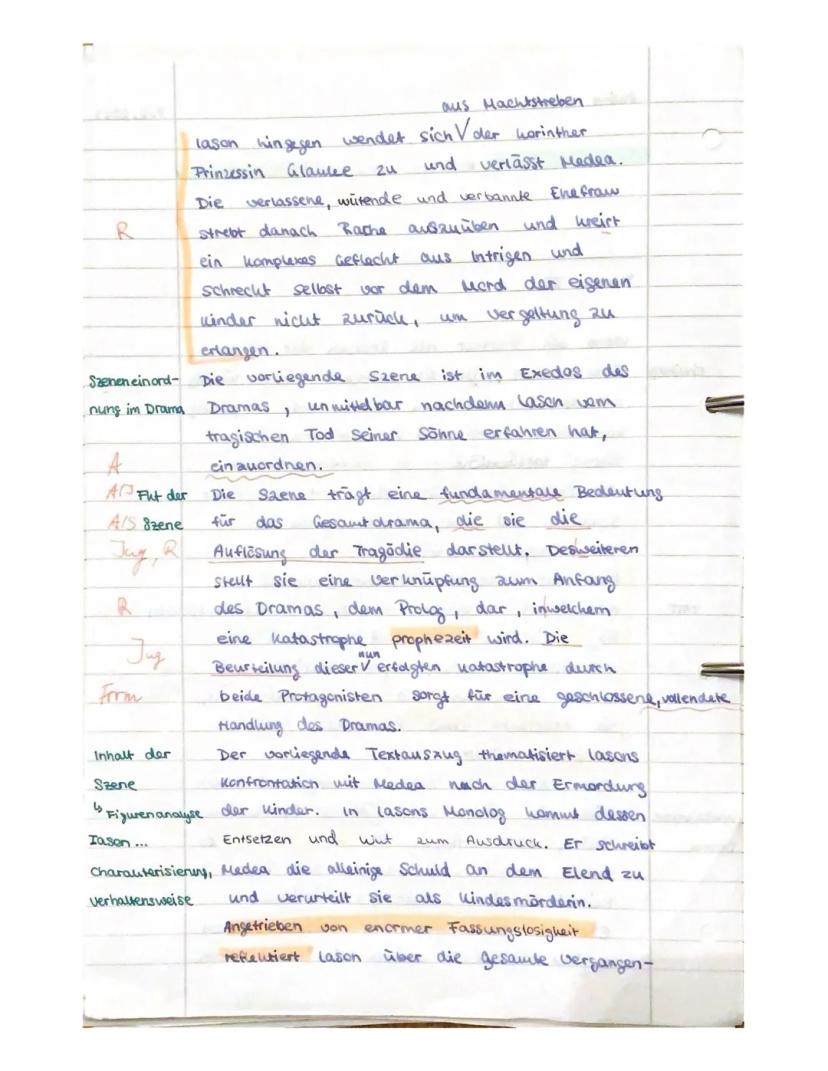 aus Machtstreben
Iason hingegen wendet sich V der korinther
Prinzessin Glauke zu und verlässt Medea.
Die verlassene, wütende und verbannte Ehefrau
R strebt danach Rache auszuüben und kreirt
ein komplexes Geflecht aus Intrigen und
schreckt selbst vor dem Mord der eigenen
Kinder nicht zurück, um Vergeltung zu
erlangen.
Szeneneinord- Die vorliegende Szene ist im Exodos des
nung im Drama Dramas, unmittelbar nachdem Iason vom
tragischen Tod seiner Söhne erfahren hat,
A einzuordnen.
Fkt der Die Szene trägt eine fundamentale Bedeutung
A/S Szene für das Gesamtdrama, die sie die
R Auflösung der Tragödie darstellt. Desweiteren
stellt sie eine Verknüpfung zum Anfang
R des Dramas, dem Prolog, dar, inwelchem
eine Katastrophe prophezeit wird. Die
nun
Beurteilung dieser V erfolgten Katastrophe durch
Form beide Protagonisten sorgt für eine geschlossene, vollendete
Handlung des Dramas.
Inhalt der Der vorliegende Textauszug thematisiert Iasons
Szene Konfrontation mit Medea nach der Ermordung
↳ Figurenanalyse der Kinder. In Iasons Monolog kommt dessen
Iason ... Entsetzen und Wut zum Ausdruck. Er schreibt
Charakterisierung, Medea die alleinige Schuld an dem Elend zu
Verhaltensweise und verurteilt sie als Kindesmörderin.
Angetrieben von enormer Fassungslosigkeit
reflektiert Iason über die gesamte Vergangen-